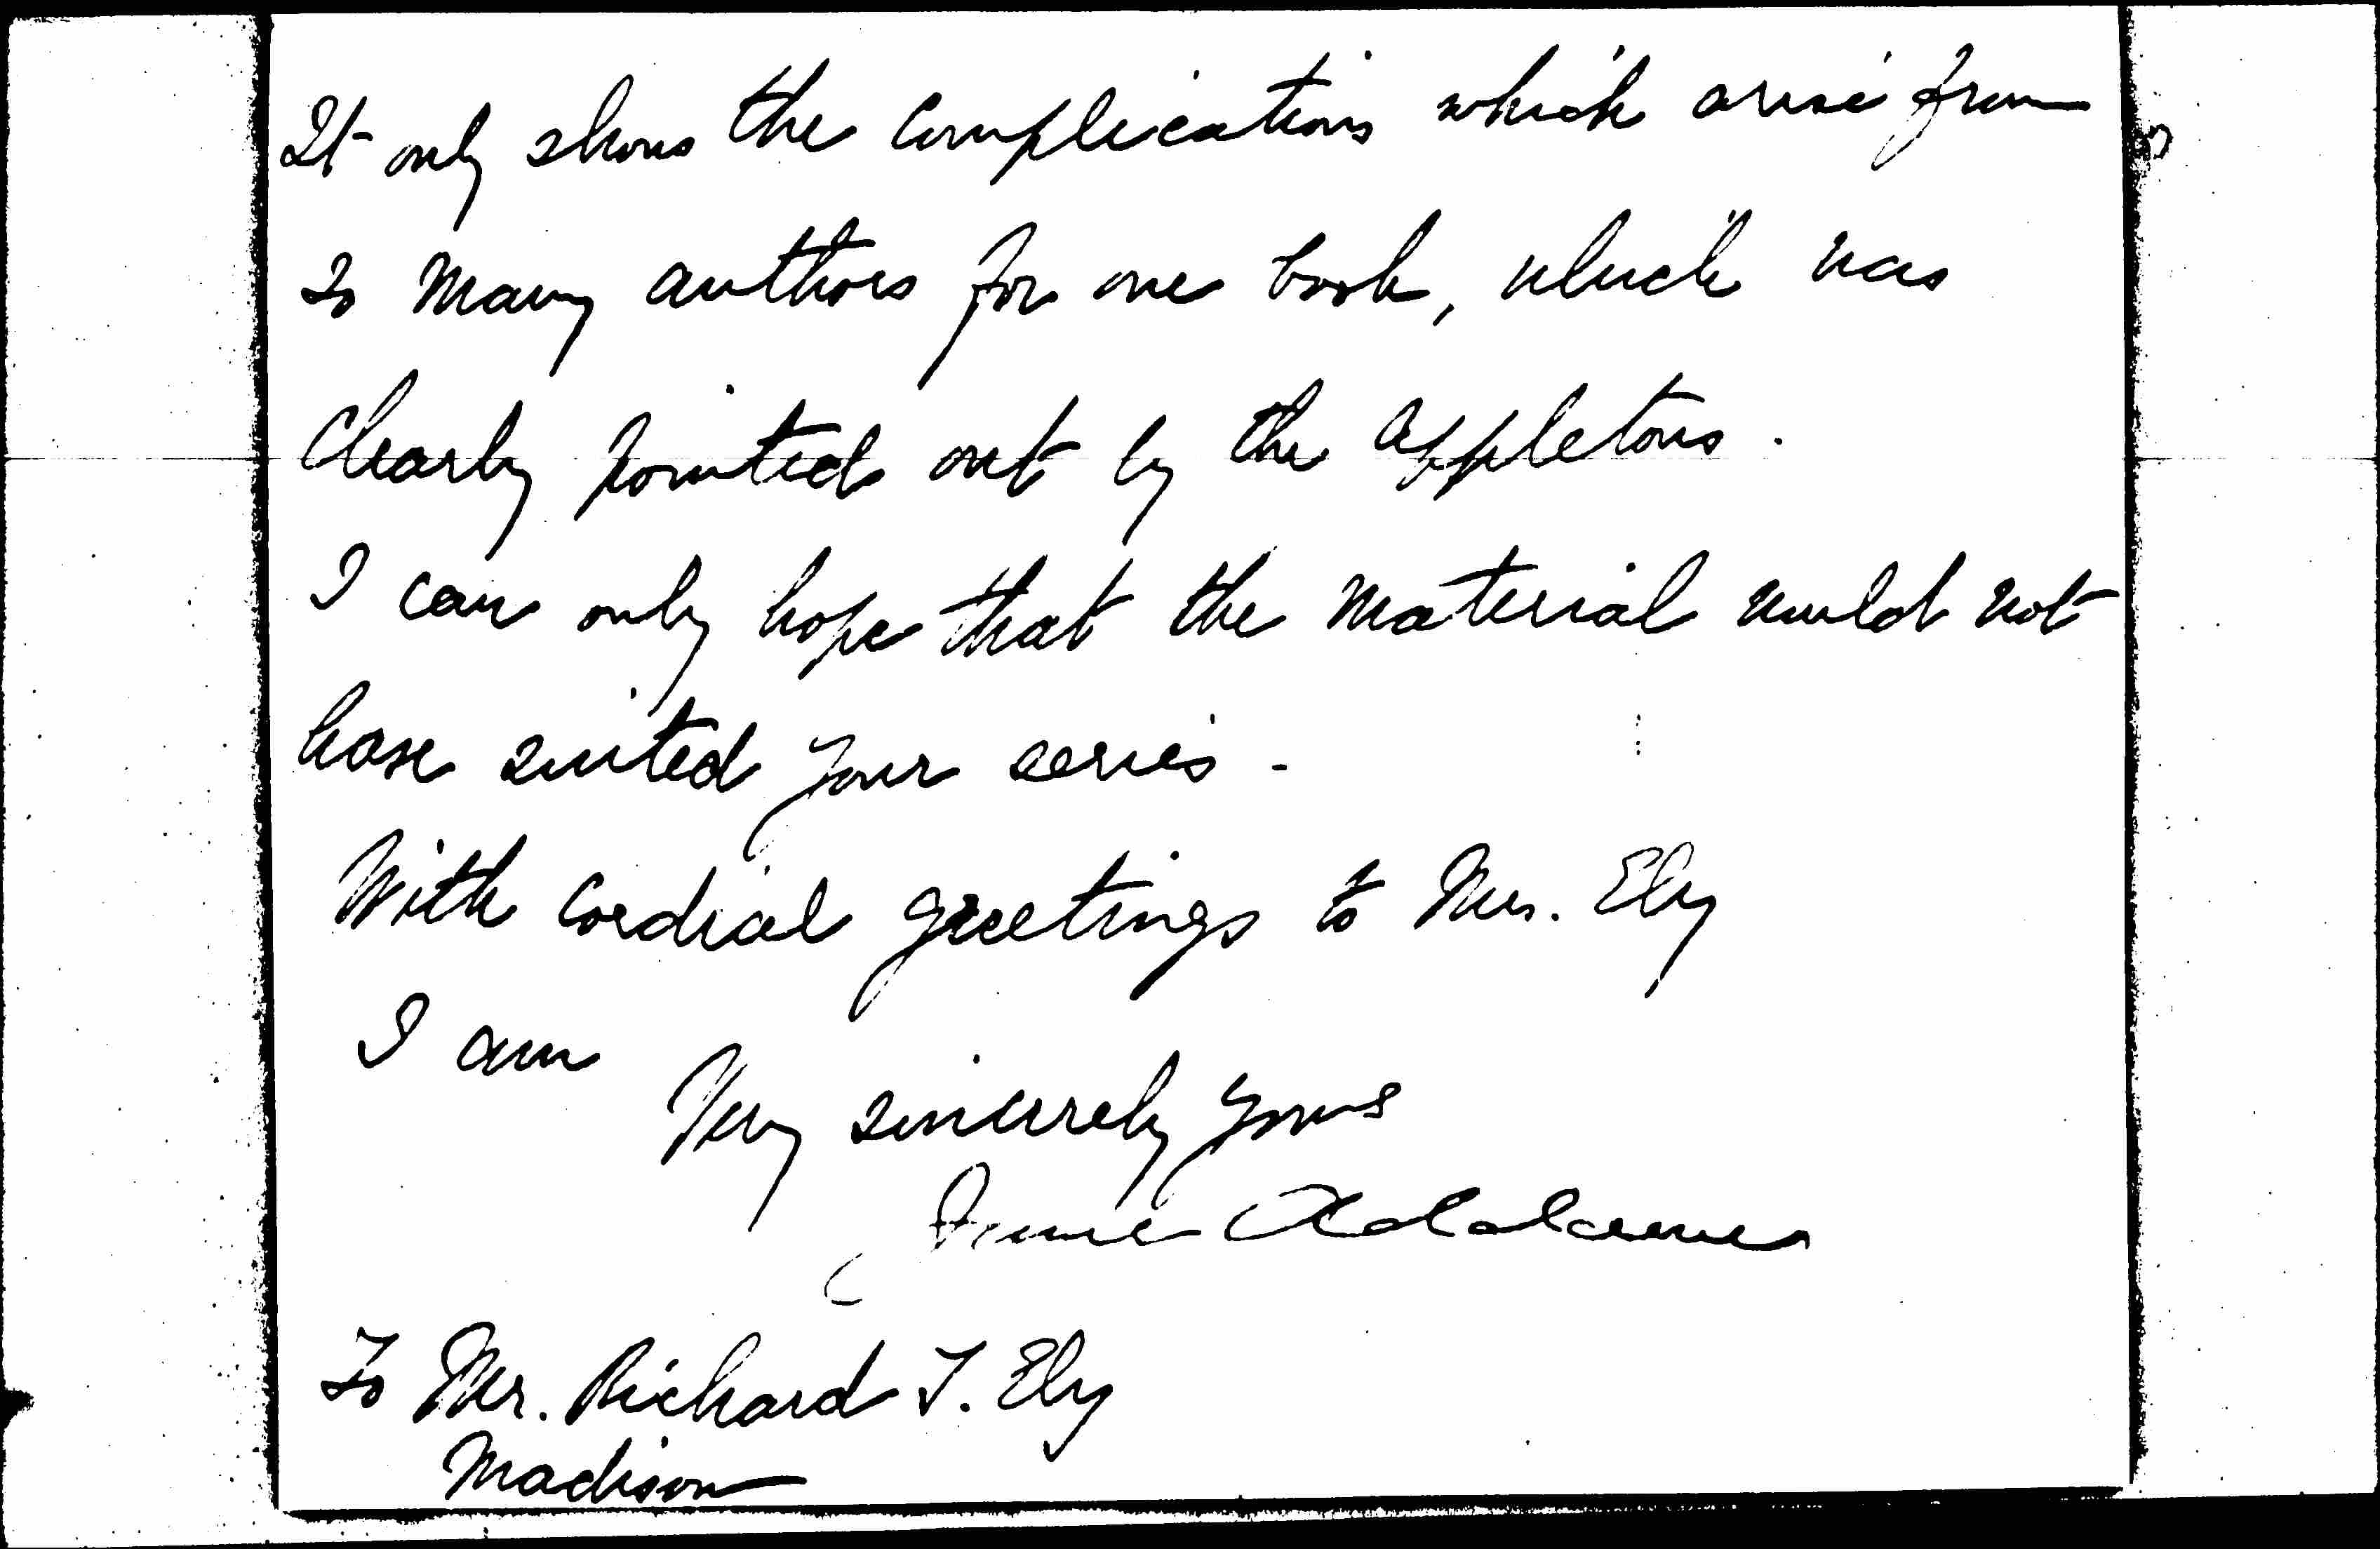 It only shows the complications which arise from
so many authors for one book, which was
clearly pointed out by the Appletons.
I can only hope that the material would not
have suited your series -
With cordial greetings to Mrs. Ely
I am
Very sincerely yours
Jane Addams
To Mr. Richard T. Ely
Madison